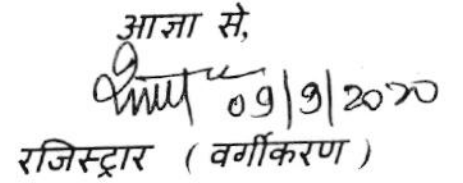 आज्ञा से,
09/9/2020
रजिस्ट्रार ( वर्गीकरण )